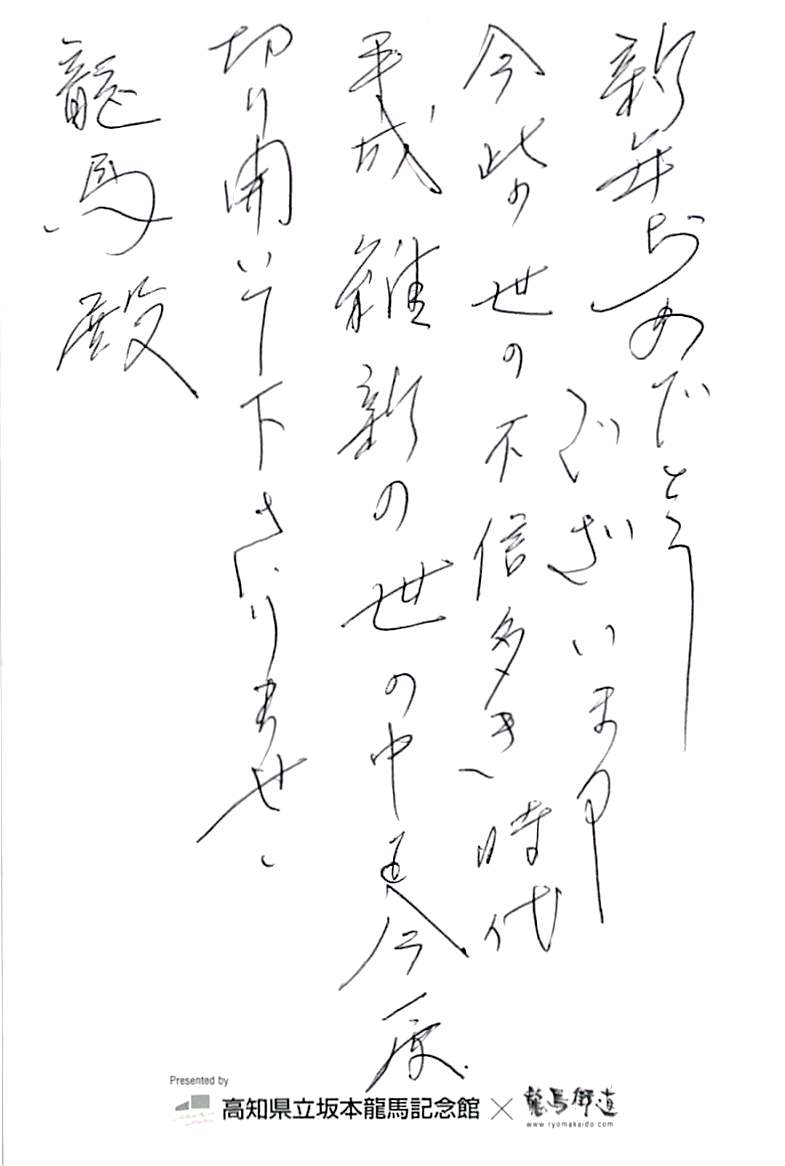 新年おめでとう
ございます
今此の世の不信多き時代
平成維新の世の中を今一度
切り開いて下さりませ。
龍馬殿
Presented by
高知県立坂本龍馬記念館 × 龍馬街道
www.ryomakaido.com